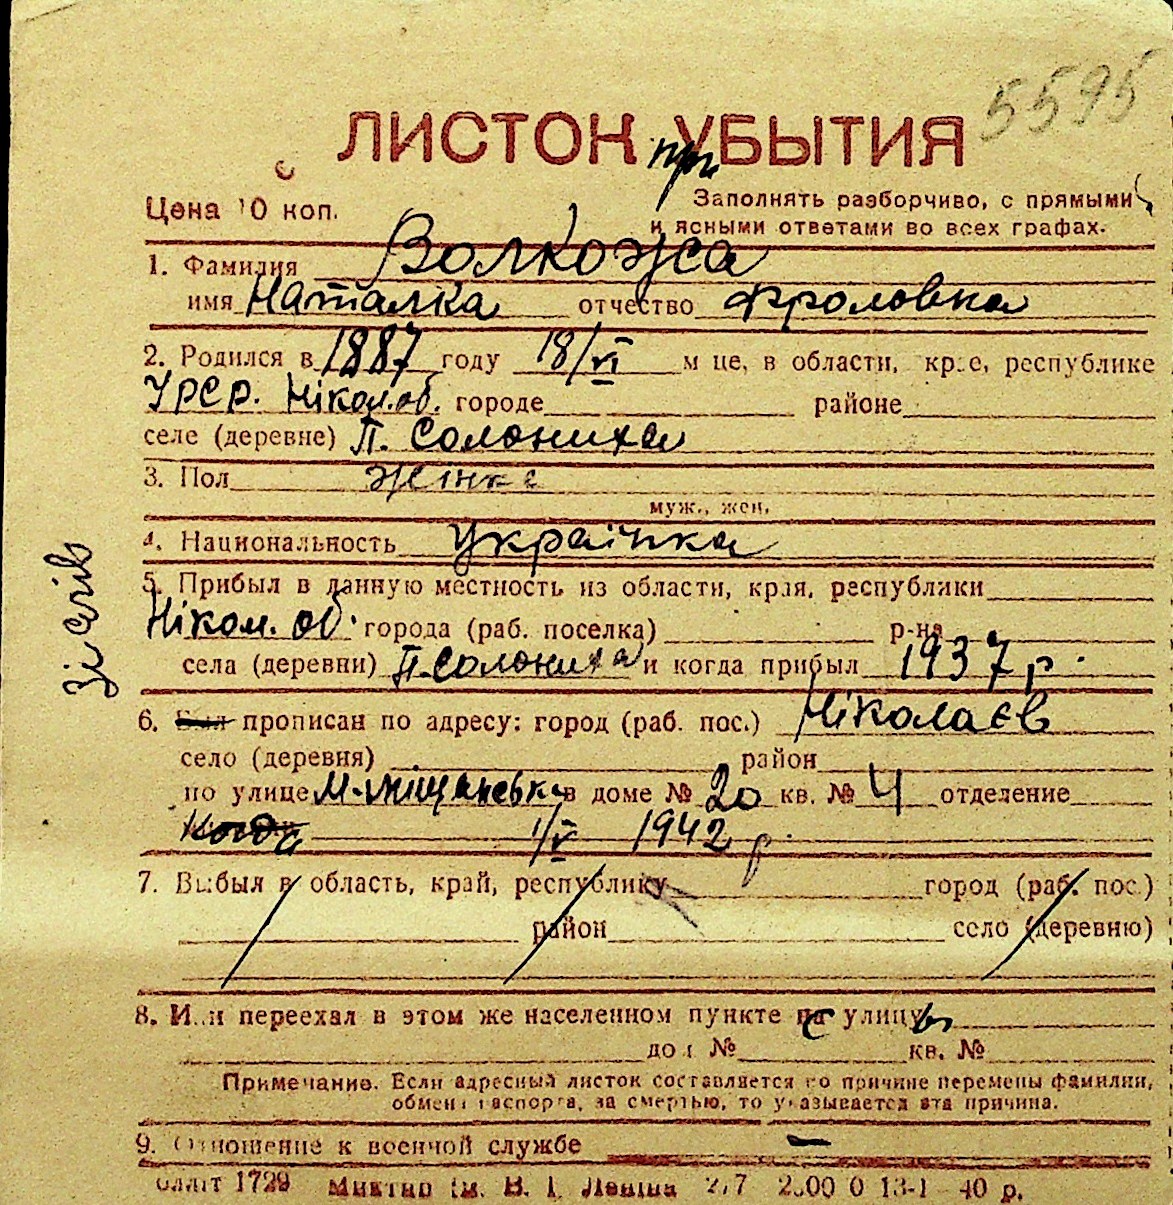 5595
ЛИСТОК УБЫТИЯ
при
Цена 10 коп.
Заполнять разборчиво, с прямыми
и ясными ответами во всех графах.
1. Фамилия Волкожа
имя Наталка отчество Фроловна
2. Родился в 1887 году 18/VI м це, в области, крае, республике
УРСР. Нікол. об. городе районе
селе (деревне) П. Солониха
3. Пол жінка
муж., жен.
4. Национальность Українка
5. Прибыл в данную местность из области, края, республики
Нікол. об. города (раб. поселка) р-на
села (деревни) П. Солониха и когда прибыл 1937 р.
6. Был прописан по адресу: город (раб. пос.) Ніколаєв
село (деревня) район
по улице М-Міщанська в доме № 20 кв. № 4 отделение
Когда 1/V 1942 р.
7. Выбыл в область, край, республику город (раб. пос.)
район село (деревню)
8. Или переехал в этом же населенном пункте с улицы
дом № кв. №
Примечание. Если адресный листок составляется по причине перемены фамилии,
обмена паспорта, за смертью, то указывается эта причина.
9. Отношение к военной службе —
1729 ім. В. І. Леніна 40 р.